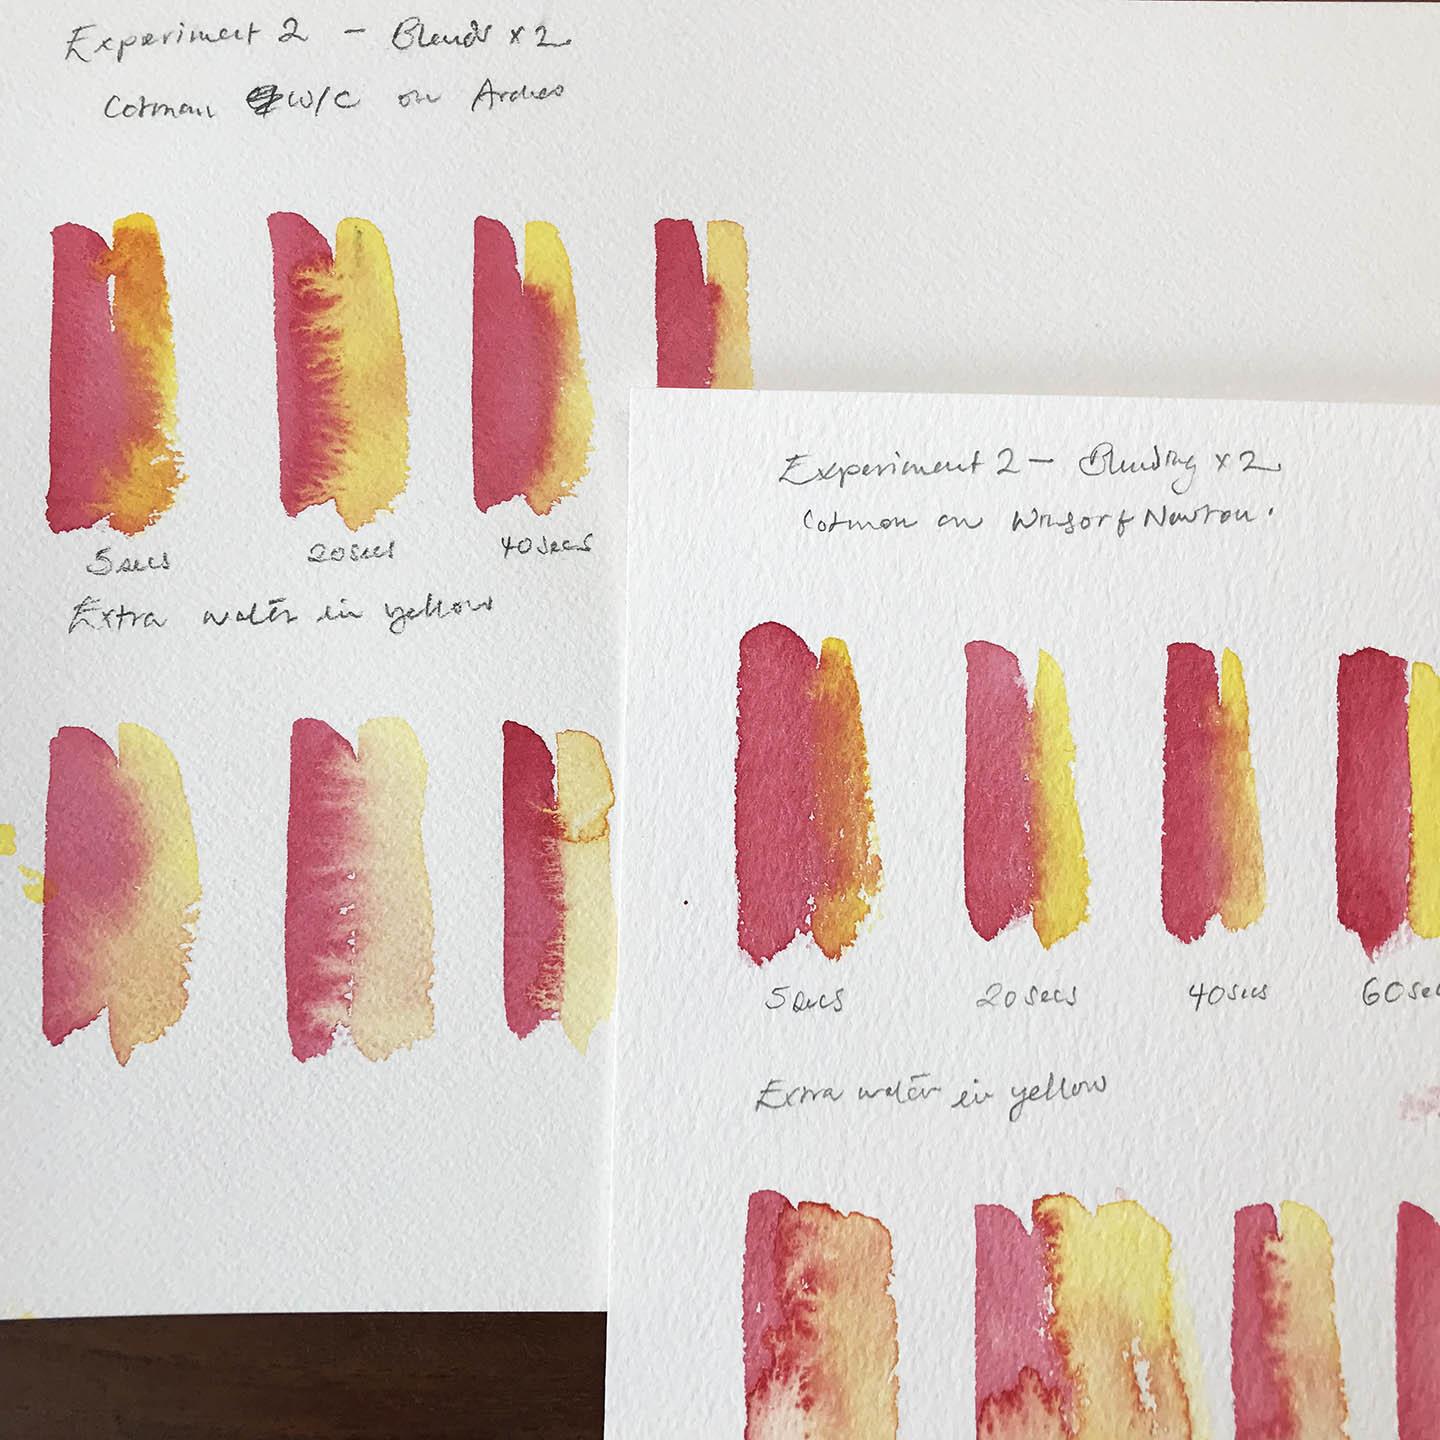 Experiment 2 - Blends x 2
Cotman W/C on Arches
5 secs
20 secs
40 secs
Extra water in yellow
Experiment 2 - Blending x 2
Cotman on Winsor & Newton.
5 secs
20 secs
40 secs
60 sec
Extra water in yellow